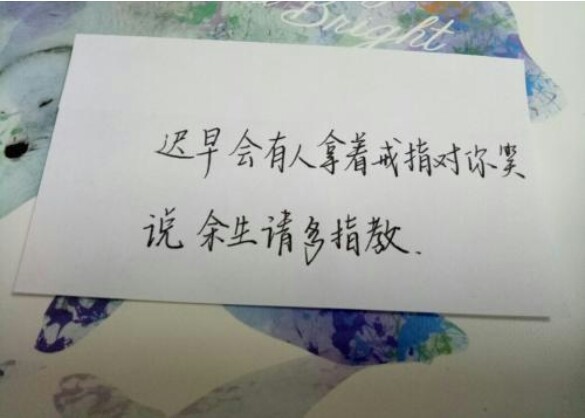 Bright
迟早会有人拿着戒指对你笑
说 余生请多指教.